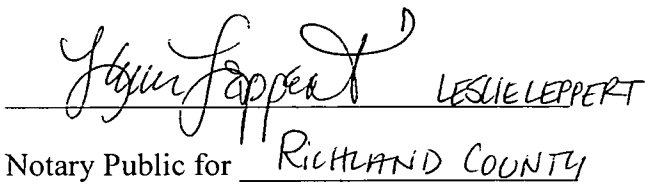 Leppert LESLIE LEPPERT
Notary Public for RICHLAND COUNTY